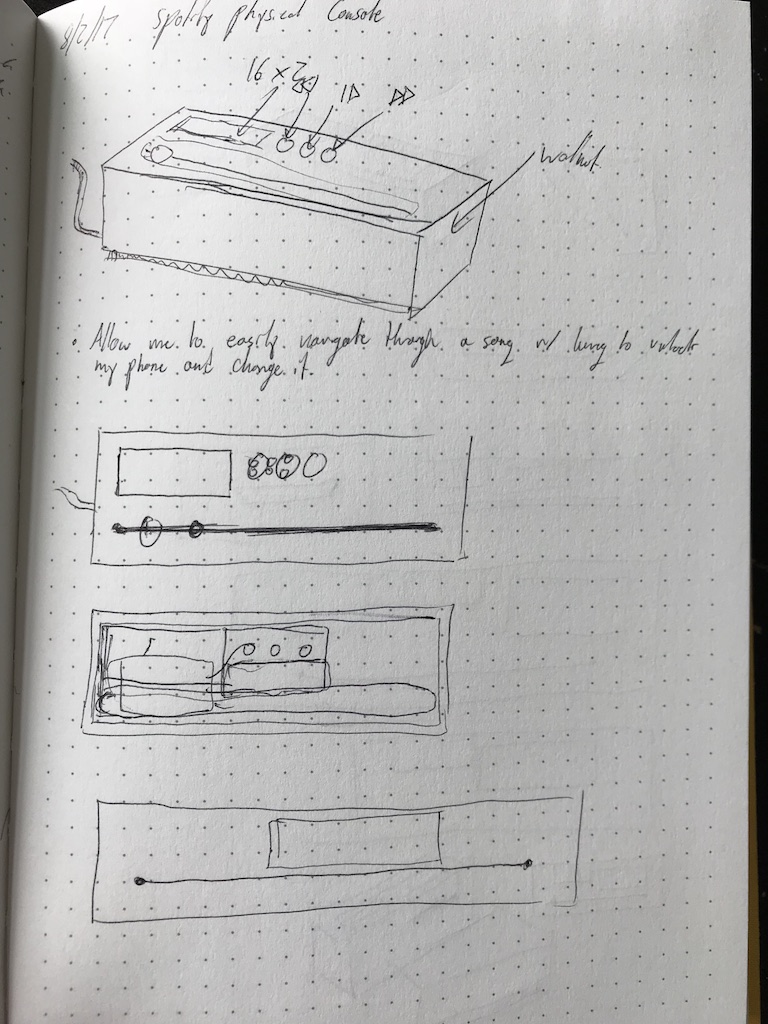 8/2/17 Spotify physical Console
16 x 2
walnut
Allow me to easily navigate through a song w/ having to unlock
my phone and change it.